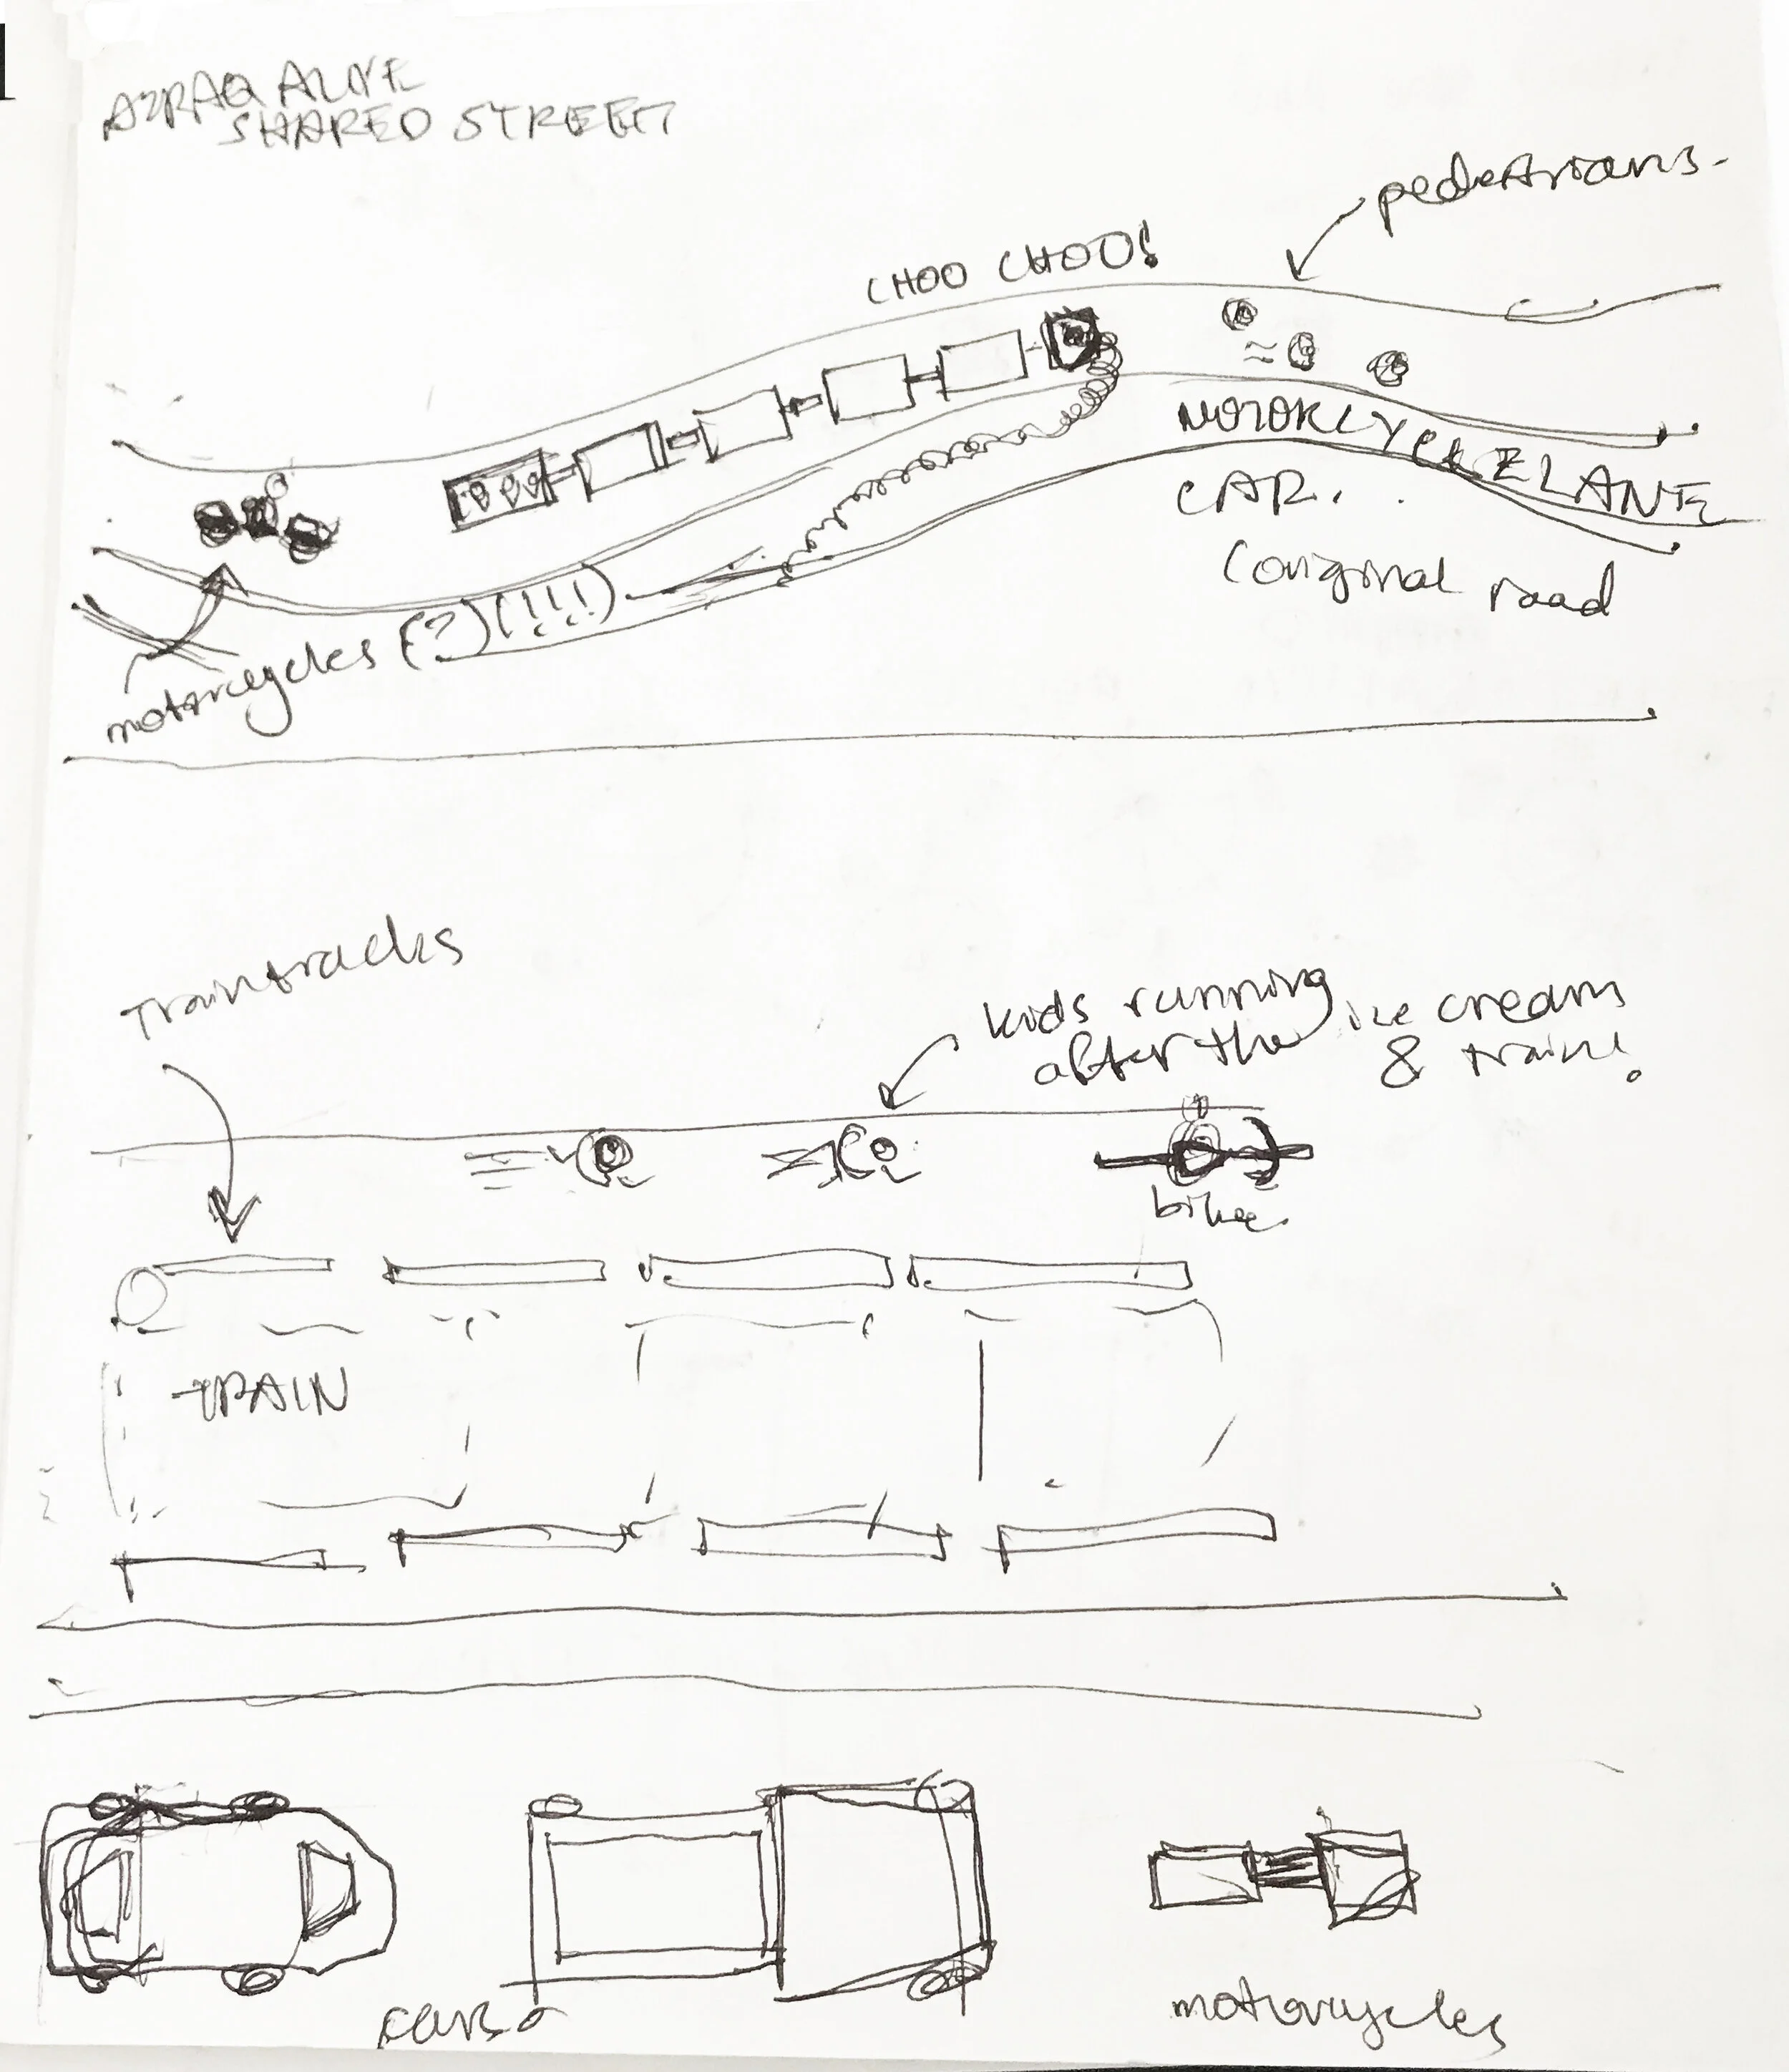 AZRAQ ALIVE
SHARED STREET
pedestrians.
CHOO CHOO!
MOTORCYCLE LANE
CAR.
(original road
motorcycles (?)(!!!)
Traintracks
kids running ice cream
after the & train!
bike
TRAIN
cars
motorcycles